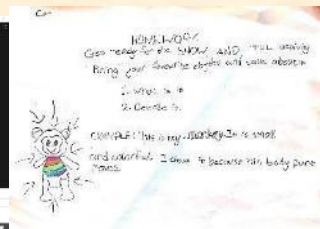 HOMEWORK
Get ready for the SHOW AND TELL activity
Bring your favourite object and talk about it
1. What is it
2. Describe it.
EXAMPLE: This is my monkey. It is small
and colorful. I chose it because his body
moves